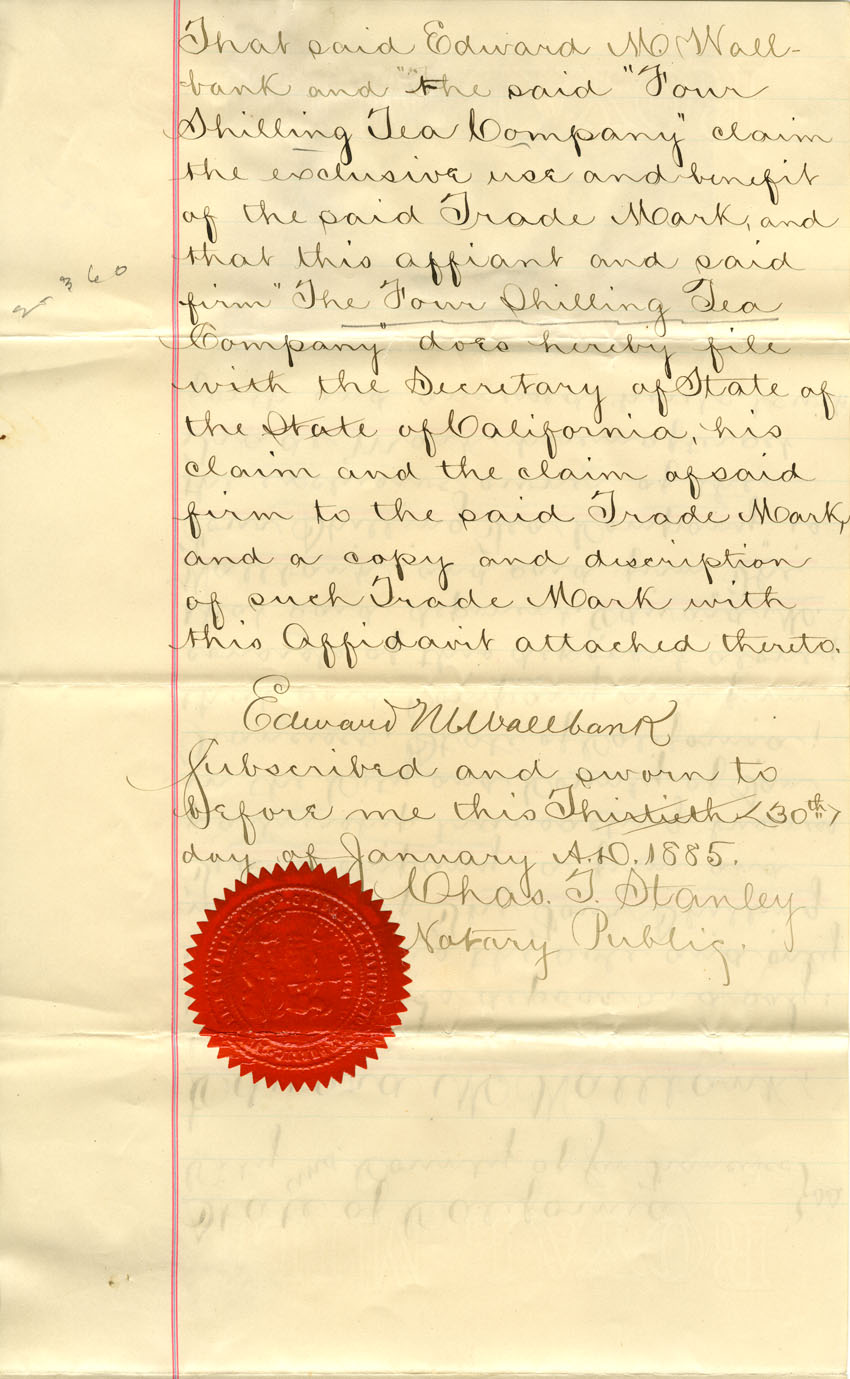 That said Edward M Wall-
bank and "the said "Four
Shilling Tea Company" claim
the exclusive use and benefit
of the said Trade Mark, and
that this affiant and said
firm "The Four Shilling Tea
Company" does hereby file
with the Secretary of State of
the State of California, his
claim and the claim of said
firm to the said Trade Mark,
and a copy and discription
of such Trade Mark with
this Affidavit attached thereto.
360
Edward M Wallbank
Subscribed and sworn to
before me this Thirtieth <30th>
day of January A.D. 1885.
Chas. T. Stanley
Notary Public.